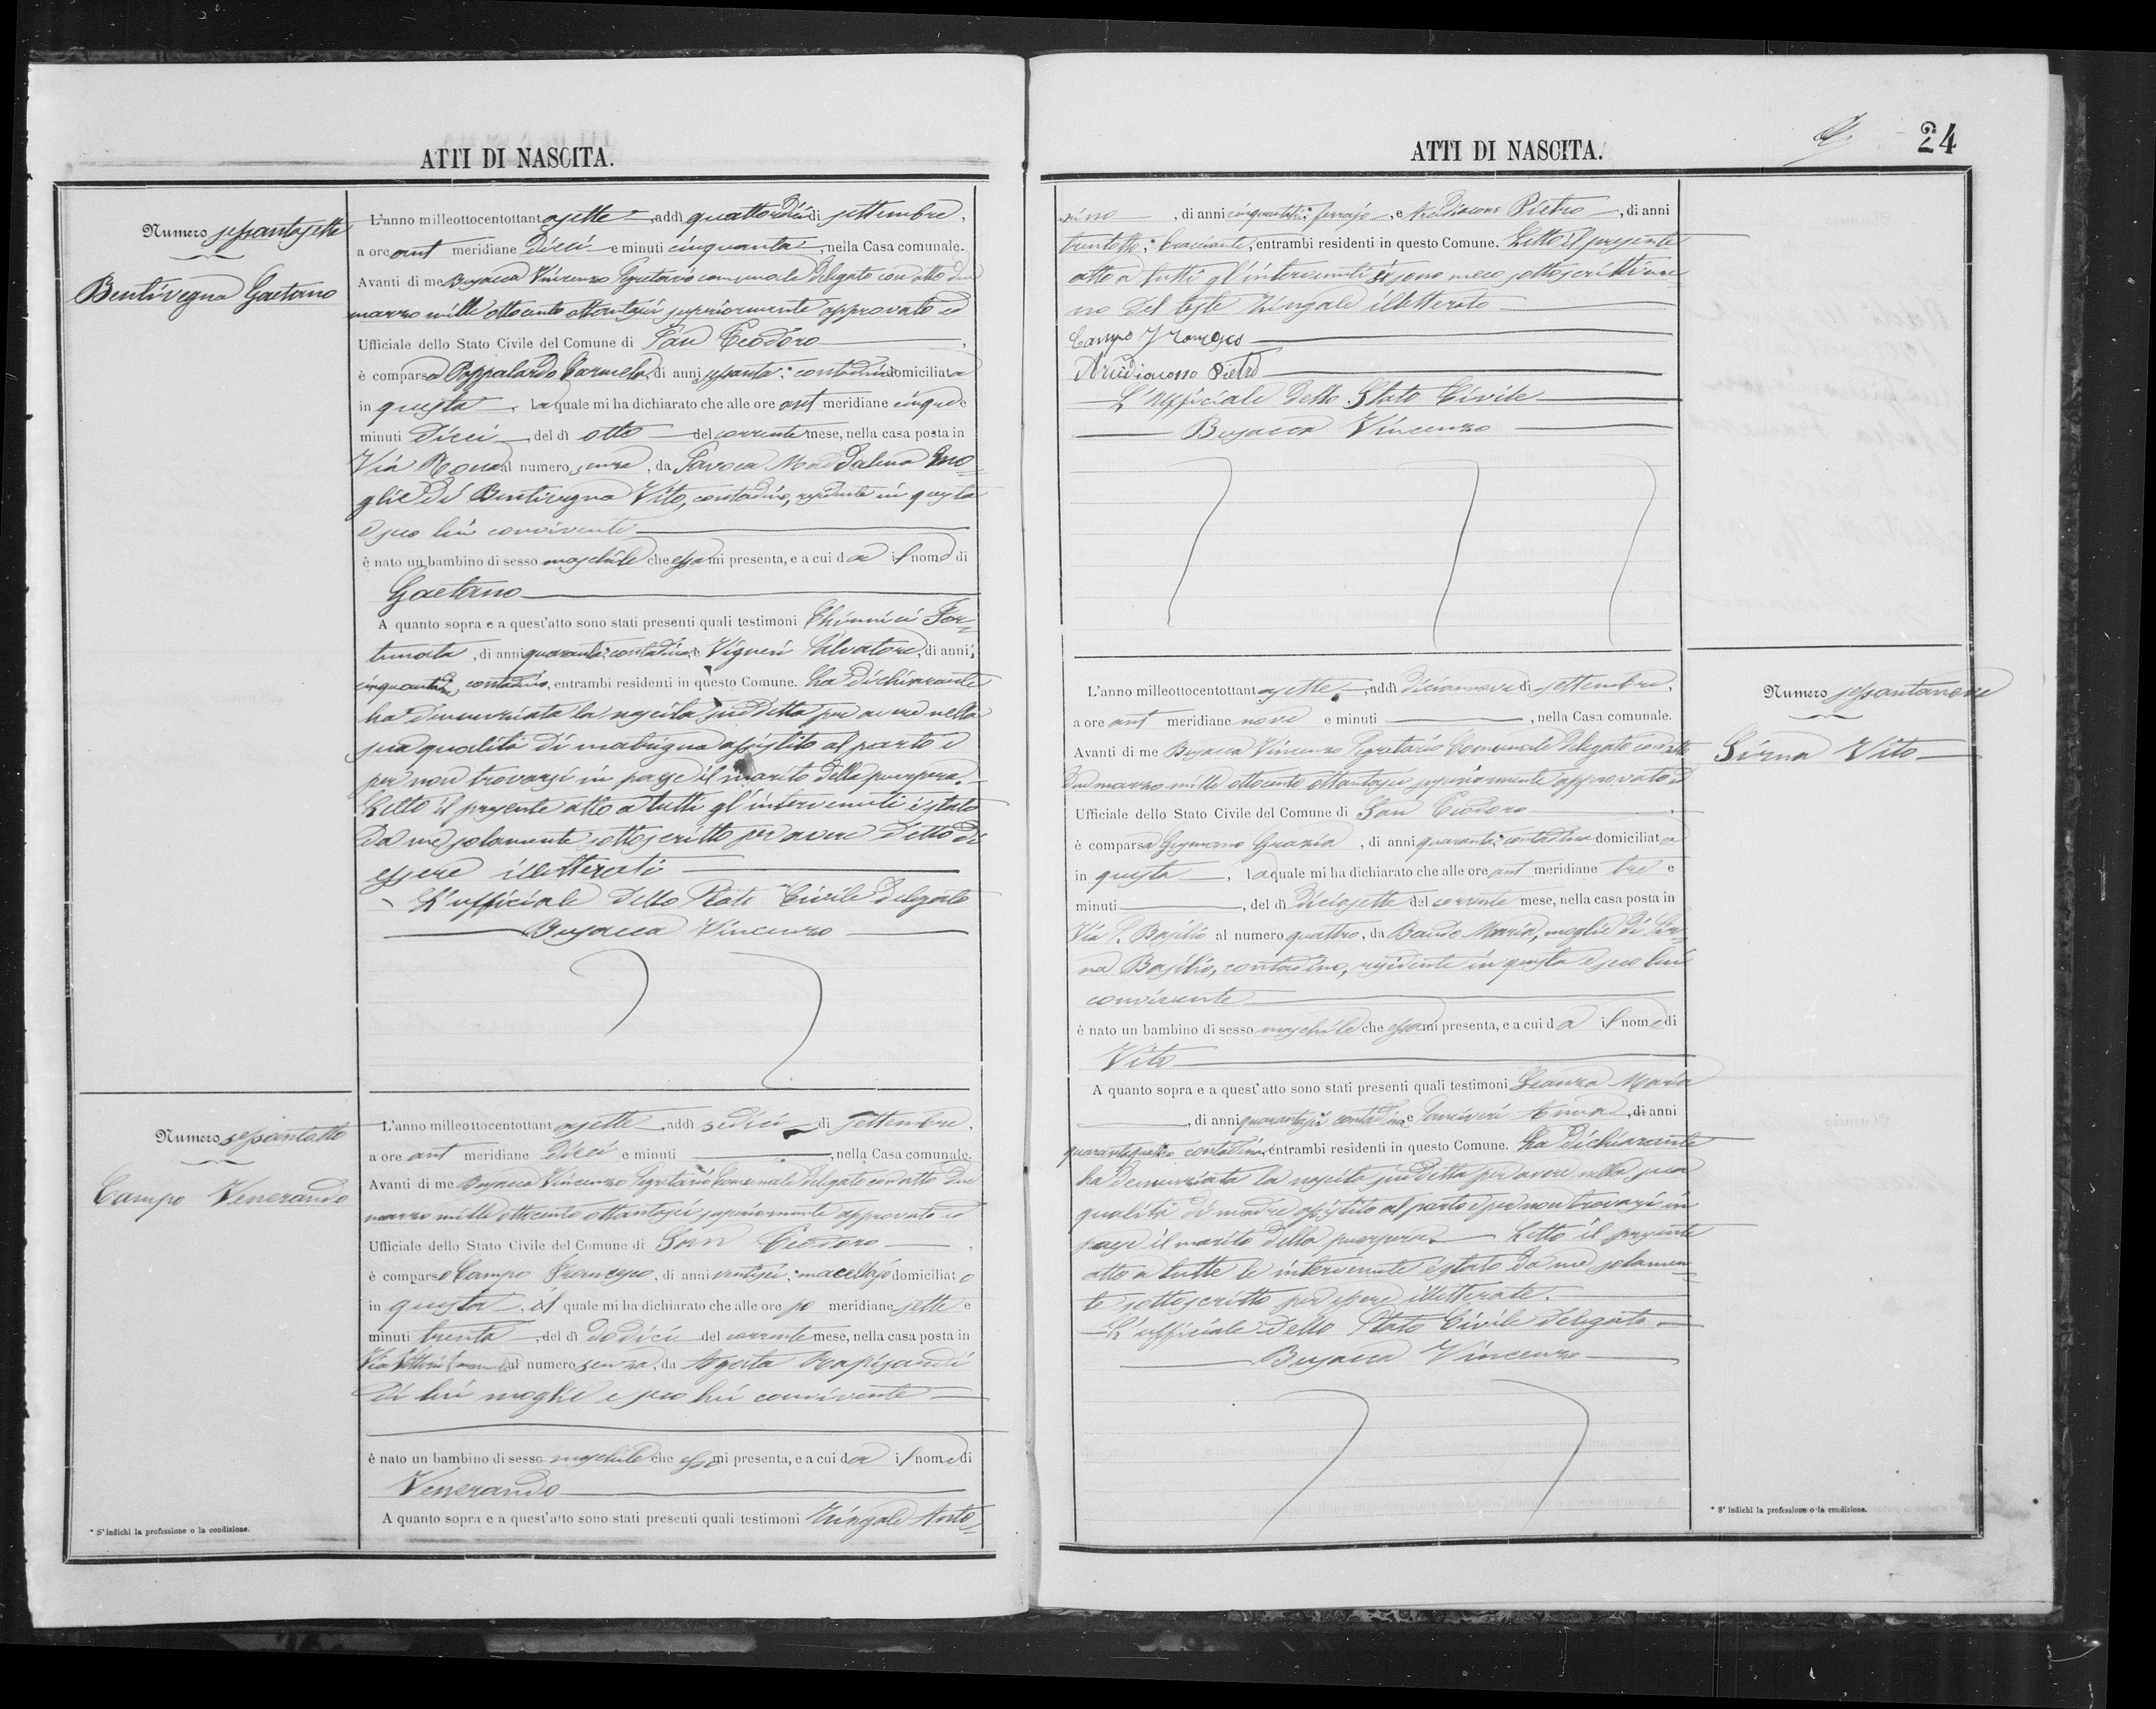 ATTI DI NASCITA.
Numero sessantasette
Bentivegna Gaetano
L'anno milleottocentottantasette, addì quattordici di settembre,
a ore ant meridiane dieci e minuti cinquanta, nella Casa comunale.
Avanti di me Busacca Vincenzo Segretario comunale delegato con atto due
marzo mille ottocento ottantasei superiormente approvato ed
Ufficiale dello Stato Civile del Comune di San Teodoro,
è comparsa Pappalardo Carmela, di anni sessanta, contadina domiciliata
in questa, la quale mi ha dichiarato che alle ore ant meridiane cinque e
minuti dieci, del dì otto del corrente mese, nella casa posta in
Via Roma al numero senza, da Savoca Maddalena mo-
glie di Bentivegna Vito, contadino, residente in questa
e seco lui convivente
è nato un bambino di sesso maschile che essa mi presenta, e a cui dà il nome di
Gaetano
A quanto sopra e a quest'atto sono stati presenti quali testimoni Chiunnici For-
tunata, di anni quaranta, contadina, e Vigneri Salvatore, di anni
cinquantadue, contadino, entrambi residenti in questo Comune. La dichiarante
ha denunziata la nascita suddetta per avere nella
sua qualità di matrigna assistito al parto e
per non trovarsi in paese il marito della puerpera.
Letto il presente atto a tutti gl'intervenuti è stato
da me solamente sottoscritto per avere detto di
essere illetterati
L'ufficiale dello Stato Civile delegato
Busacca Vincenzo
Numero sessantotto
Campo Venerando
L'anno milleottocentottantasette, addì sedici di settembre,
a ore ant meridiane dieci e minuti, nella Casa comunale.
Avanti di me Busacca Vincenzo Segretario Comunale delegato con atto due
marzo mille ottocento ottantasei superiormente approvato ed
Ufficiale dello Stato Civile del Comune di San Teodoro,
è comparso Campo Francesco, di anni ventisei, macellajo domiciliato
in questa, il quale mi ha dichiarato che alle ore po meridiane sette e
minuti trenta, del dì dodici del corrente mese, nella casa posta in
Via Vittorio Emanuele al numero senza, da Agata Rapisardi
di lui moglie e seco lui convivente
è nato un bambino di sesso maschile che esso mi presenta, e a cui dà il nome di
Venerando
A quanto sopra e a quest'atto sono stati presenti quali testimoni Zingale Anto-
* S'indichi la professione o la condizione.
ATTI DI NASCITA.
24
nino, di anni cinquantatrè, ferrajo, e Arcidiacono Pietro, di anni
trentotto, bracciante, entrambi residenti in questo Comune. Letto il presente
atto a tutti gl'intervenuti si sono meco sottoscritti me-
no del teste Zingale illetterato
Campo Francesco
Arcidiacono Pietro
L'ufficiale dello Stato Civile
Busacca Vincenzo
Numero sessantanove
Sirna Vito
L'anno milleottocentottantasette, addì diciannove di settembre,
a ore ant meridiane nove e minuti, nella Casa comunale.
Avanti di me Busacca Vincenzo Segretario Comunale delegato con atto
due marzo mille ottocento ottantasei superiormente approvato ed
Ufficiale dello Stato Civile del Comune di San Teodoro
è comparsa Gegmano Grazia, di anni quaranta, contadina domiciliata
in questa, la quale mi ha dichiarato che alle ore ant meridiane tre e
minuti, del dì diciasette del corrente mese, nella casa posta in
Via S. Basilio al numero quattro, da Bando Maria, moglie di Sir-
na Basilio, contadino, residente in questa e seco lui
convivente
è nato un bambino di sesso maschile che essa mi presenta, e a cui dà il nome di
Vito
A quanto sopra e a quest'atto sono stati presenti quali testimoni Maria
, di anni quarantasei contadina e Anna, di anni
quarantaquattro contadina, entrambi residenti in questo Comune. La dichiarante
ha denunziata la nascita suddetta per avere nella sua
qualità di madre assistito al parto e per non trovarsi in
paese il marito della puerpera. Letto il presente
atto a tutte le intervenute è stato da me solamen-
te sottoscritto per essere illetterate.
L'ufficiale dello Stato Civile delegato
Busacca Vincenzo
* S'indichi la professione o la condizione.